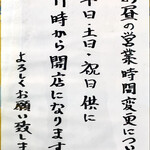 お昼の営業時間変更につい
平日土日・祝日供に
11時から開店になります
よろしくお願い致しま